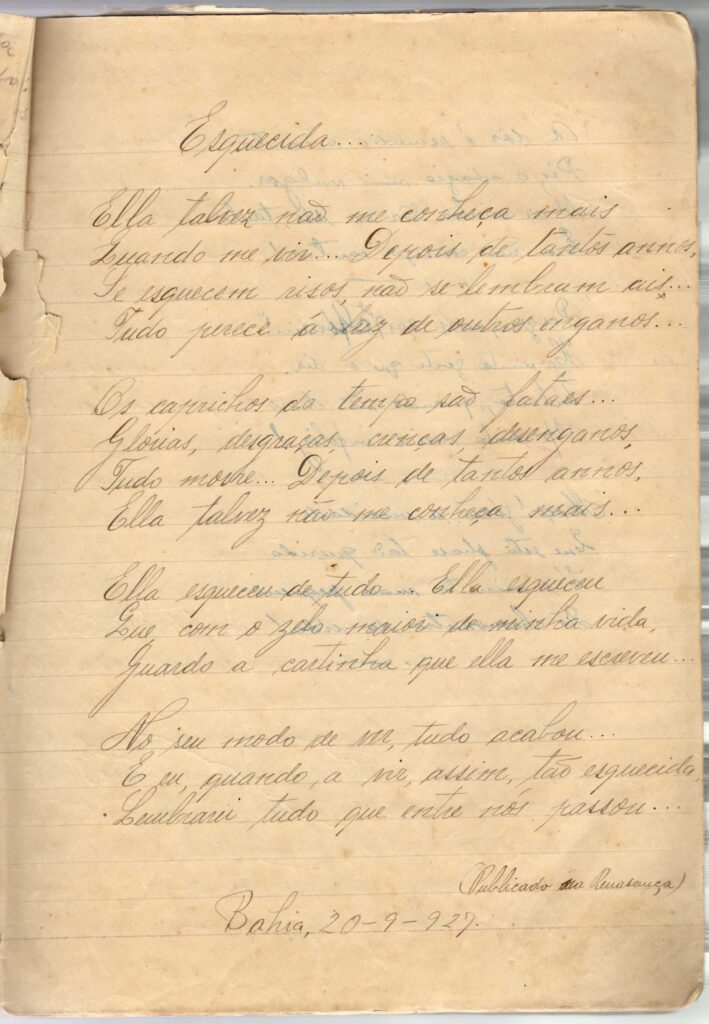 Esquecida...
Ella talvez naõ me conheça mais
Quando me vir... Depois de tantos annos,
Se esquecem risos, naõ se lembram ais...
Tudo perece á luz de outros enganos...
Os caprichos do tempo saõ fataes...
Glorias, desgraças, crenças, desenganos,
Tudo morre... Depois de tantos annos,
Ella talvez não me conheça mais...
Ella esqueceu de tudo. Ella esqueceu
Que, com o zelo maior de minha vida,
Guardo a cartinha que ella me escreveu...
No seu modo de ver, tudo acabou...
E eu, quando a vir, assim, tão esquecida,
Lembrarei tudo que entre nós passou...
(Publicado na Renascença)
Bahia, 20-9-927.